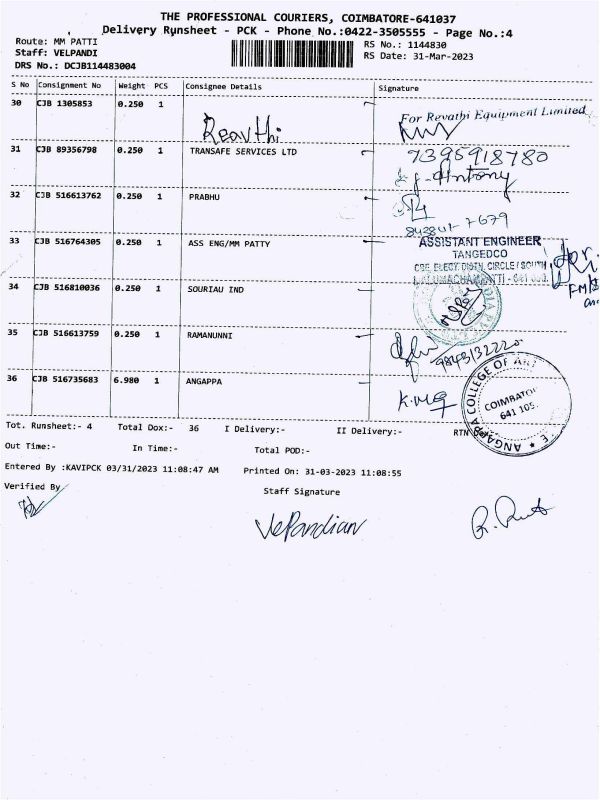 THE PROFESSIONAL COURIERS, COIMBATORE-641037
Delivery Runsheet - PCK - Phone No.:0422-3505555 - Page No.:4
Route: MM PATTI
RS No.: 1144830
Staff: VELPANDI
RS Date: 31-Mar-2023
DRS No.: DCJB114483004
S No Consignment No Weight PCS Consignee Details Signature
30 CJB 1305853 0.250 1
For Revathi Equipment Limited
Reavthi
31 CJB 89356798 0.250 1 TRANSAFE SERVICES LTD
7395918780
Antony
32 CJB 516613762 0.250 1 PRABHU
33 CJB 516764305 0.250 1 ASS ENG/MM PATTY
ASSISTANT ENGINEER
TANGEDCO
CBE ELECT. DISTN. CIRCLE / SOUTH
34 CJB 516810036 0.250 1 SOURIAU IND
35 CJB 516613759 0.250 1 RAMANUNNI
36 CJB 516735683 6.980 1 ANGAPPA
K.Mg
ANGAPPA COLLEGE OF
COIMBATOR
641 105.
Tot. Runsheet:- 4 Total Dox:- 36 I Delivery:- II Delivery:- RTN
Out Time:- In Time:- Total POD:-
Entered By :KAVIPCK 03/31/2023 11:08:47 AM Printed On: 31-03-2023 11:08:55
Verified By
Staff Signature
VelPandian